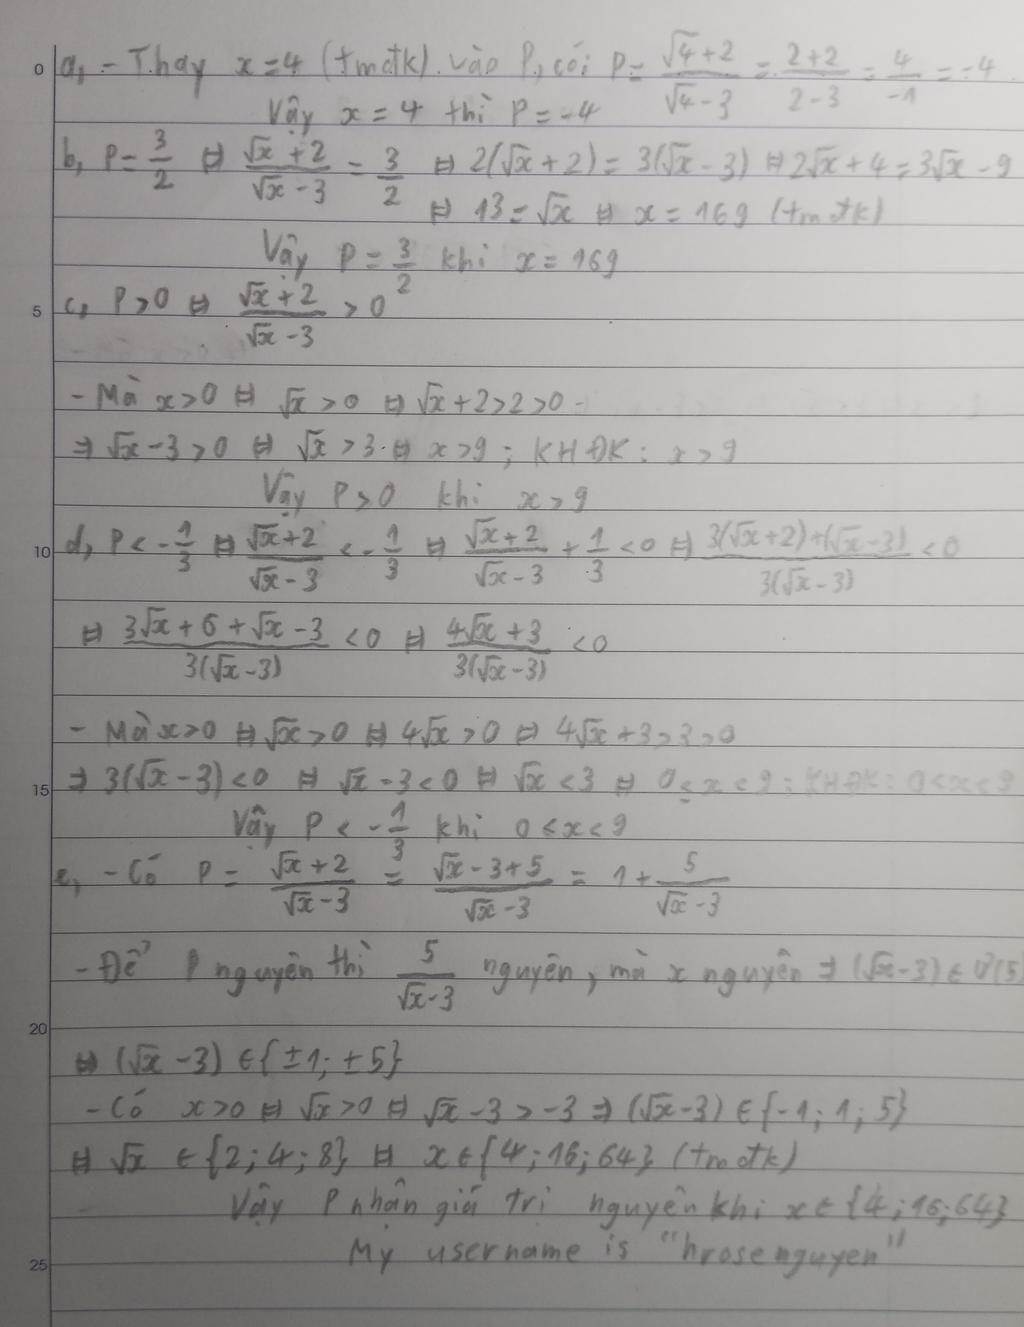 0 a, - Thay x = 4 (tmđtk) vào P, có: P = (√4 + 2)/(√4 - 3) = (2 + 2)/(2 - 3) = 4/-1 = -4
Vậy x = 4 thì P = -4
b, P = 3/2 ⇔ (√x + 2)/(√x - 3) = 3/2 ⇔ 2(√x + 2) = 3(√x - 3) ⇔ 2√x + 4 = 3√x - 9
⇔ 13 = √x ⇔ x = 169 (tmđtk)
Vậy P = 3/2 khi x = 169
5 c, P > 0 ⇔ (√x + 2)/(√x - 3) > 0
- Mà x > 0 ⇔ √x > 0 ⇔ √x + 2 > 2 > 0
⇒ √x - 3 > 0 ⇔ √x > 3 ⇔ x > 9 ; KHĐK: x > 9
Vậy P > 0 khi x > 9
10 d, P < -1/3 ⇔ (√x + 2)/(√x - 3) < -1/3 ⇔ (√x + 2)/(√x - 3) + 1/3 < 0 ⇔ (3(√x + 2) + (√x - 3))/(3(√x - 3)) < 0
⇔ (3√x + 6 + √x - 3)/(3(√x - 3)) < 0 ⇔ (4√x + 3)/(3(√x - 3)) < 0
- Mà x > 0 ⇔ √x > 0 ⇔ 4√x > 0 ⇔ 4√x + 3 > 3 > 0
15 ⇒ 3(√x - 3) < 0 ⇔ √x - 3 < 0 ⇔ √x < 3 ⇔ 0 ≤ x < 9 ; KHĐK: 0 < x < 9
Vậy P < -1/3 khi 0 < x < 9
e, - Có P = (√x + 2)/(√x - 3) = (√x - 3 + 5)/(√x - 3) = 1 + 5/(√x - 3)
- Để P nguyên thì 5/(√x - 3) nguyên, mà x nguyên ⇒ (√x - 3) ∈ Ư(5)
20
⇔ (√x - 3) ∈ {±1; ±5}
- Có x > 0 ⇔ √x > 0 ⇔ √x - 3 > -3 ⇒ (√x - 3) ∈ {-1; 1; 5}
⇔ √x ∈ {2; 4; 8} ⇔ x ∈ {4; 16; 64} (tmđtk)
Vậy P nhận giá trị nguyên khi x ∈ {4; 16; 64}
25 My username is "hrosenguyen"